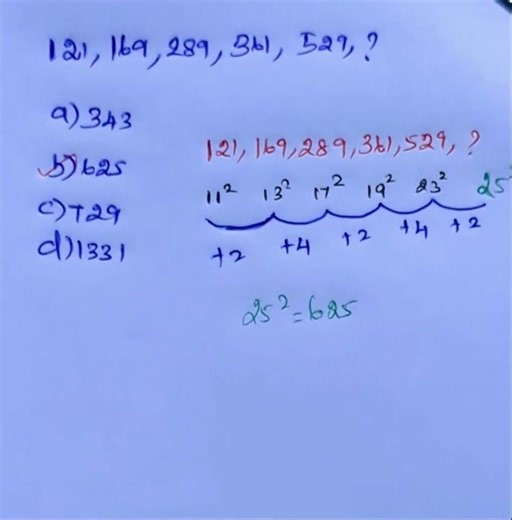 121, 169, 289, 361, 529, ?
a) 343
b) 625
c) 729
d) 1331
121, 169, 289, 361, 529, ?
11² 13² 17² 19² 23² 25²
+2 +4 +2 +4 +2
25² = 625